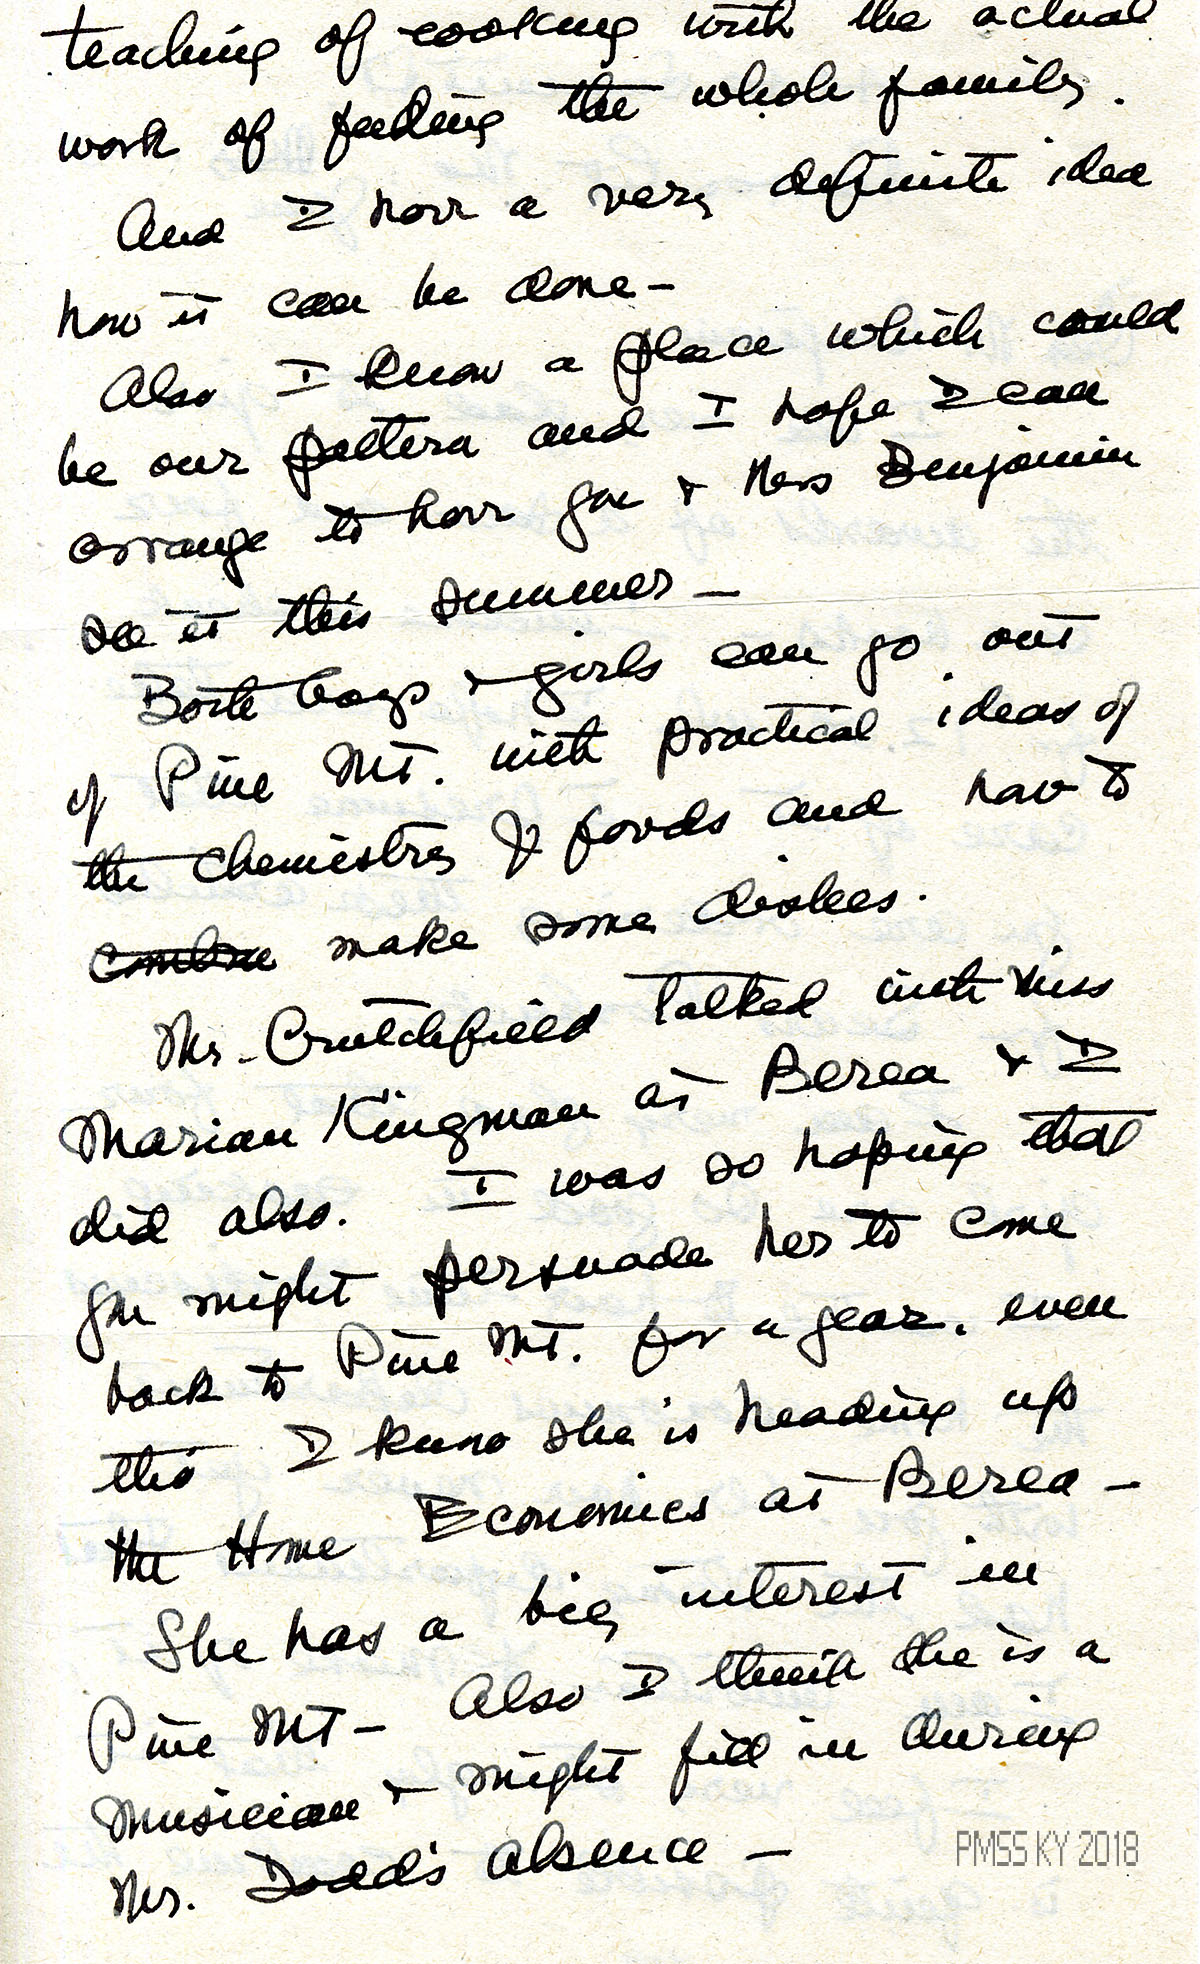 teaching of cooking with the actual
work of feeding the whole family.
And I have a very definite idea
how it can be done –
Also I know a place which could
be our pattern and I hope I can
arrange to have you & Miss Benjamin
see it this summer –
Both boys & girls can go out
of Pine Mt. with practical ideas of
the chemistry of foods and how to
combine make some dishes.
Mr. Crutchfield talked with Miss
Marian Kingman at Berea & I
did also. I was so hoping that
you might persuade her to come
back to Pine Mt. for a year, even
tho I know she is heading up
the Home Economics at Berea –
She has a big interest in
Pine Mt – Also I think she is a
musician & might fill in during
Mr. Dodd's absence –
PMSS KY 2018